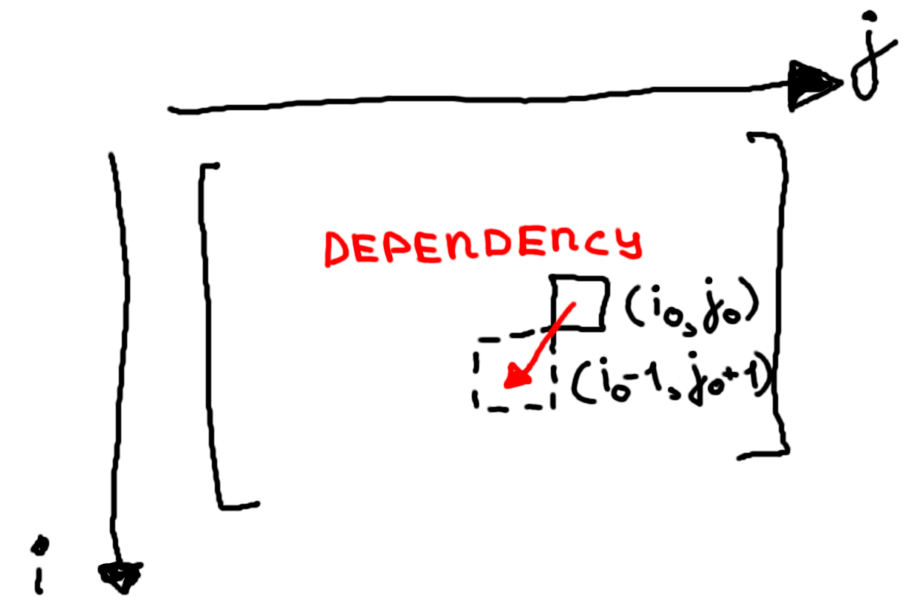 j
DEPENDENCY
(i₀, j₀)
(i₀-1, j₀+1)
i